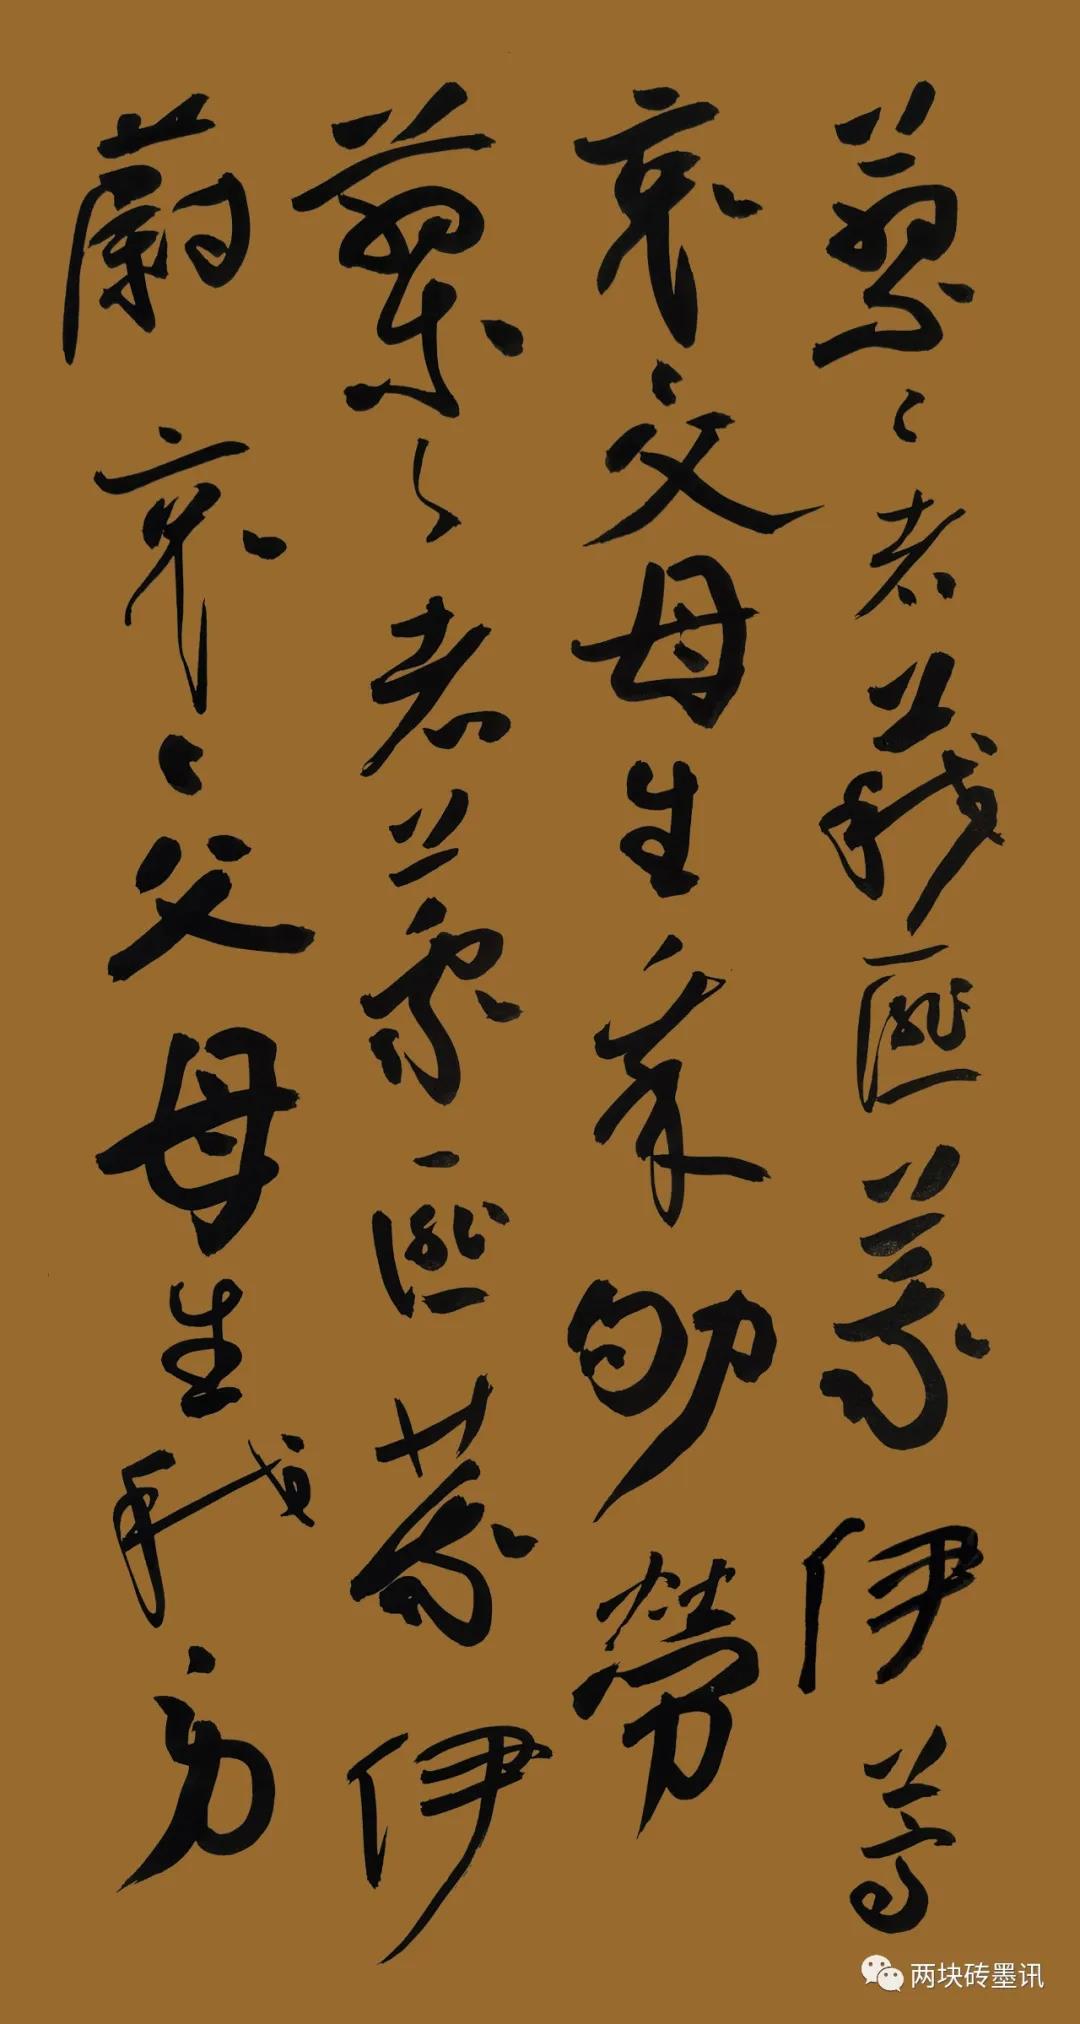 蓼々者莪匪莪伊蒿
哀々父母生我劬勞
蓼々者莪匪莪伊
蔚哀々父母生我勞
两块砖墨讯